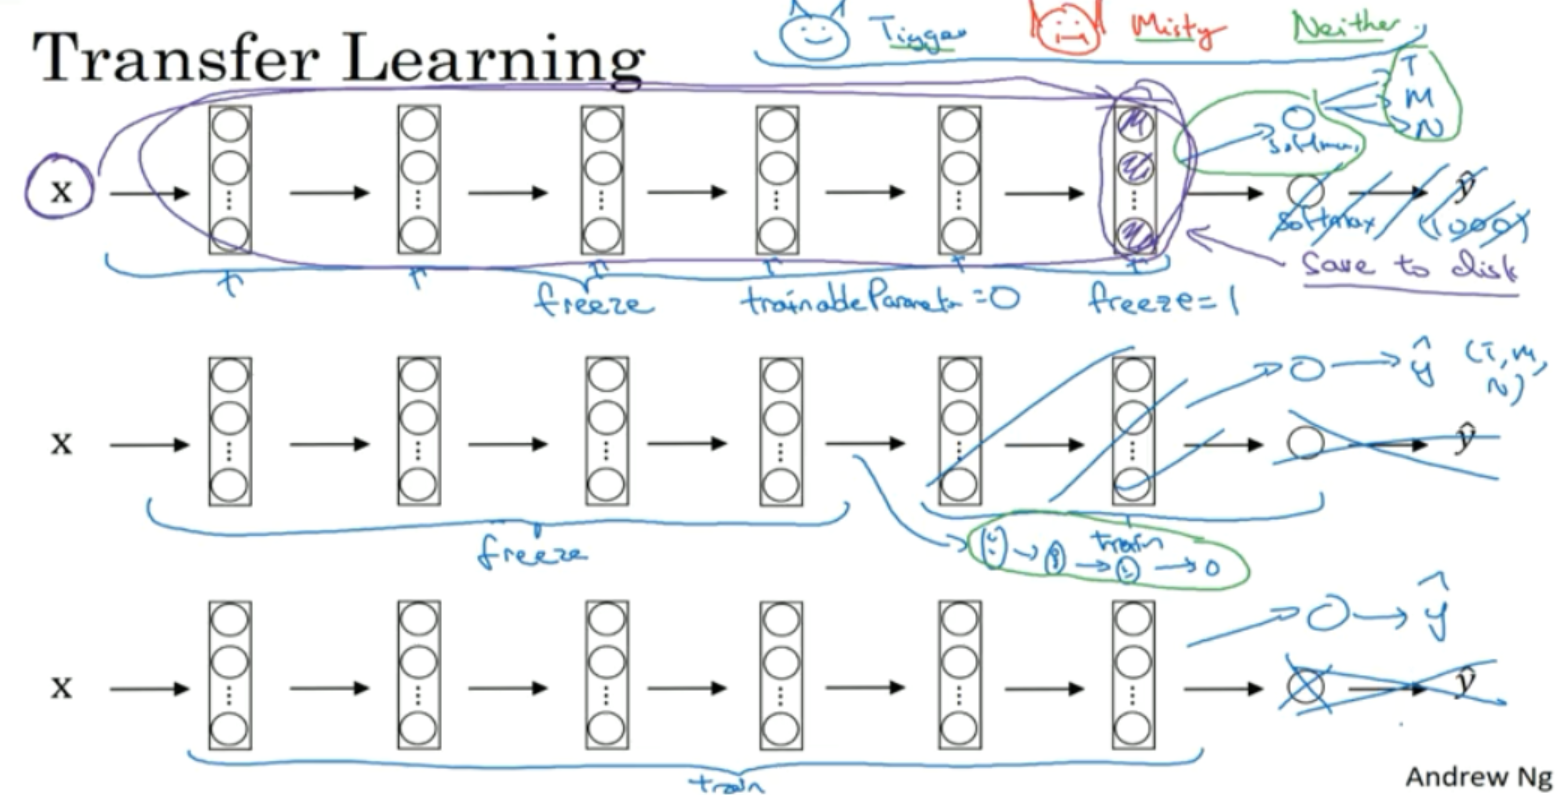 Transfer Learning
Tigger Misty Neither
T
M
N
softmax
x
softmax ŷ
(1000)
Save to disk
freeze trainableParameter = 0 freeze = 1
ŷ (T, M,
N)
x ŷ
freeze train
ŷ
x ŷ
train
Andrew Ng